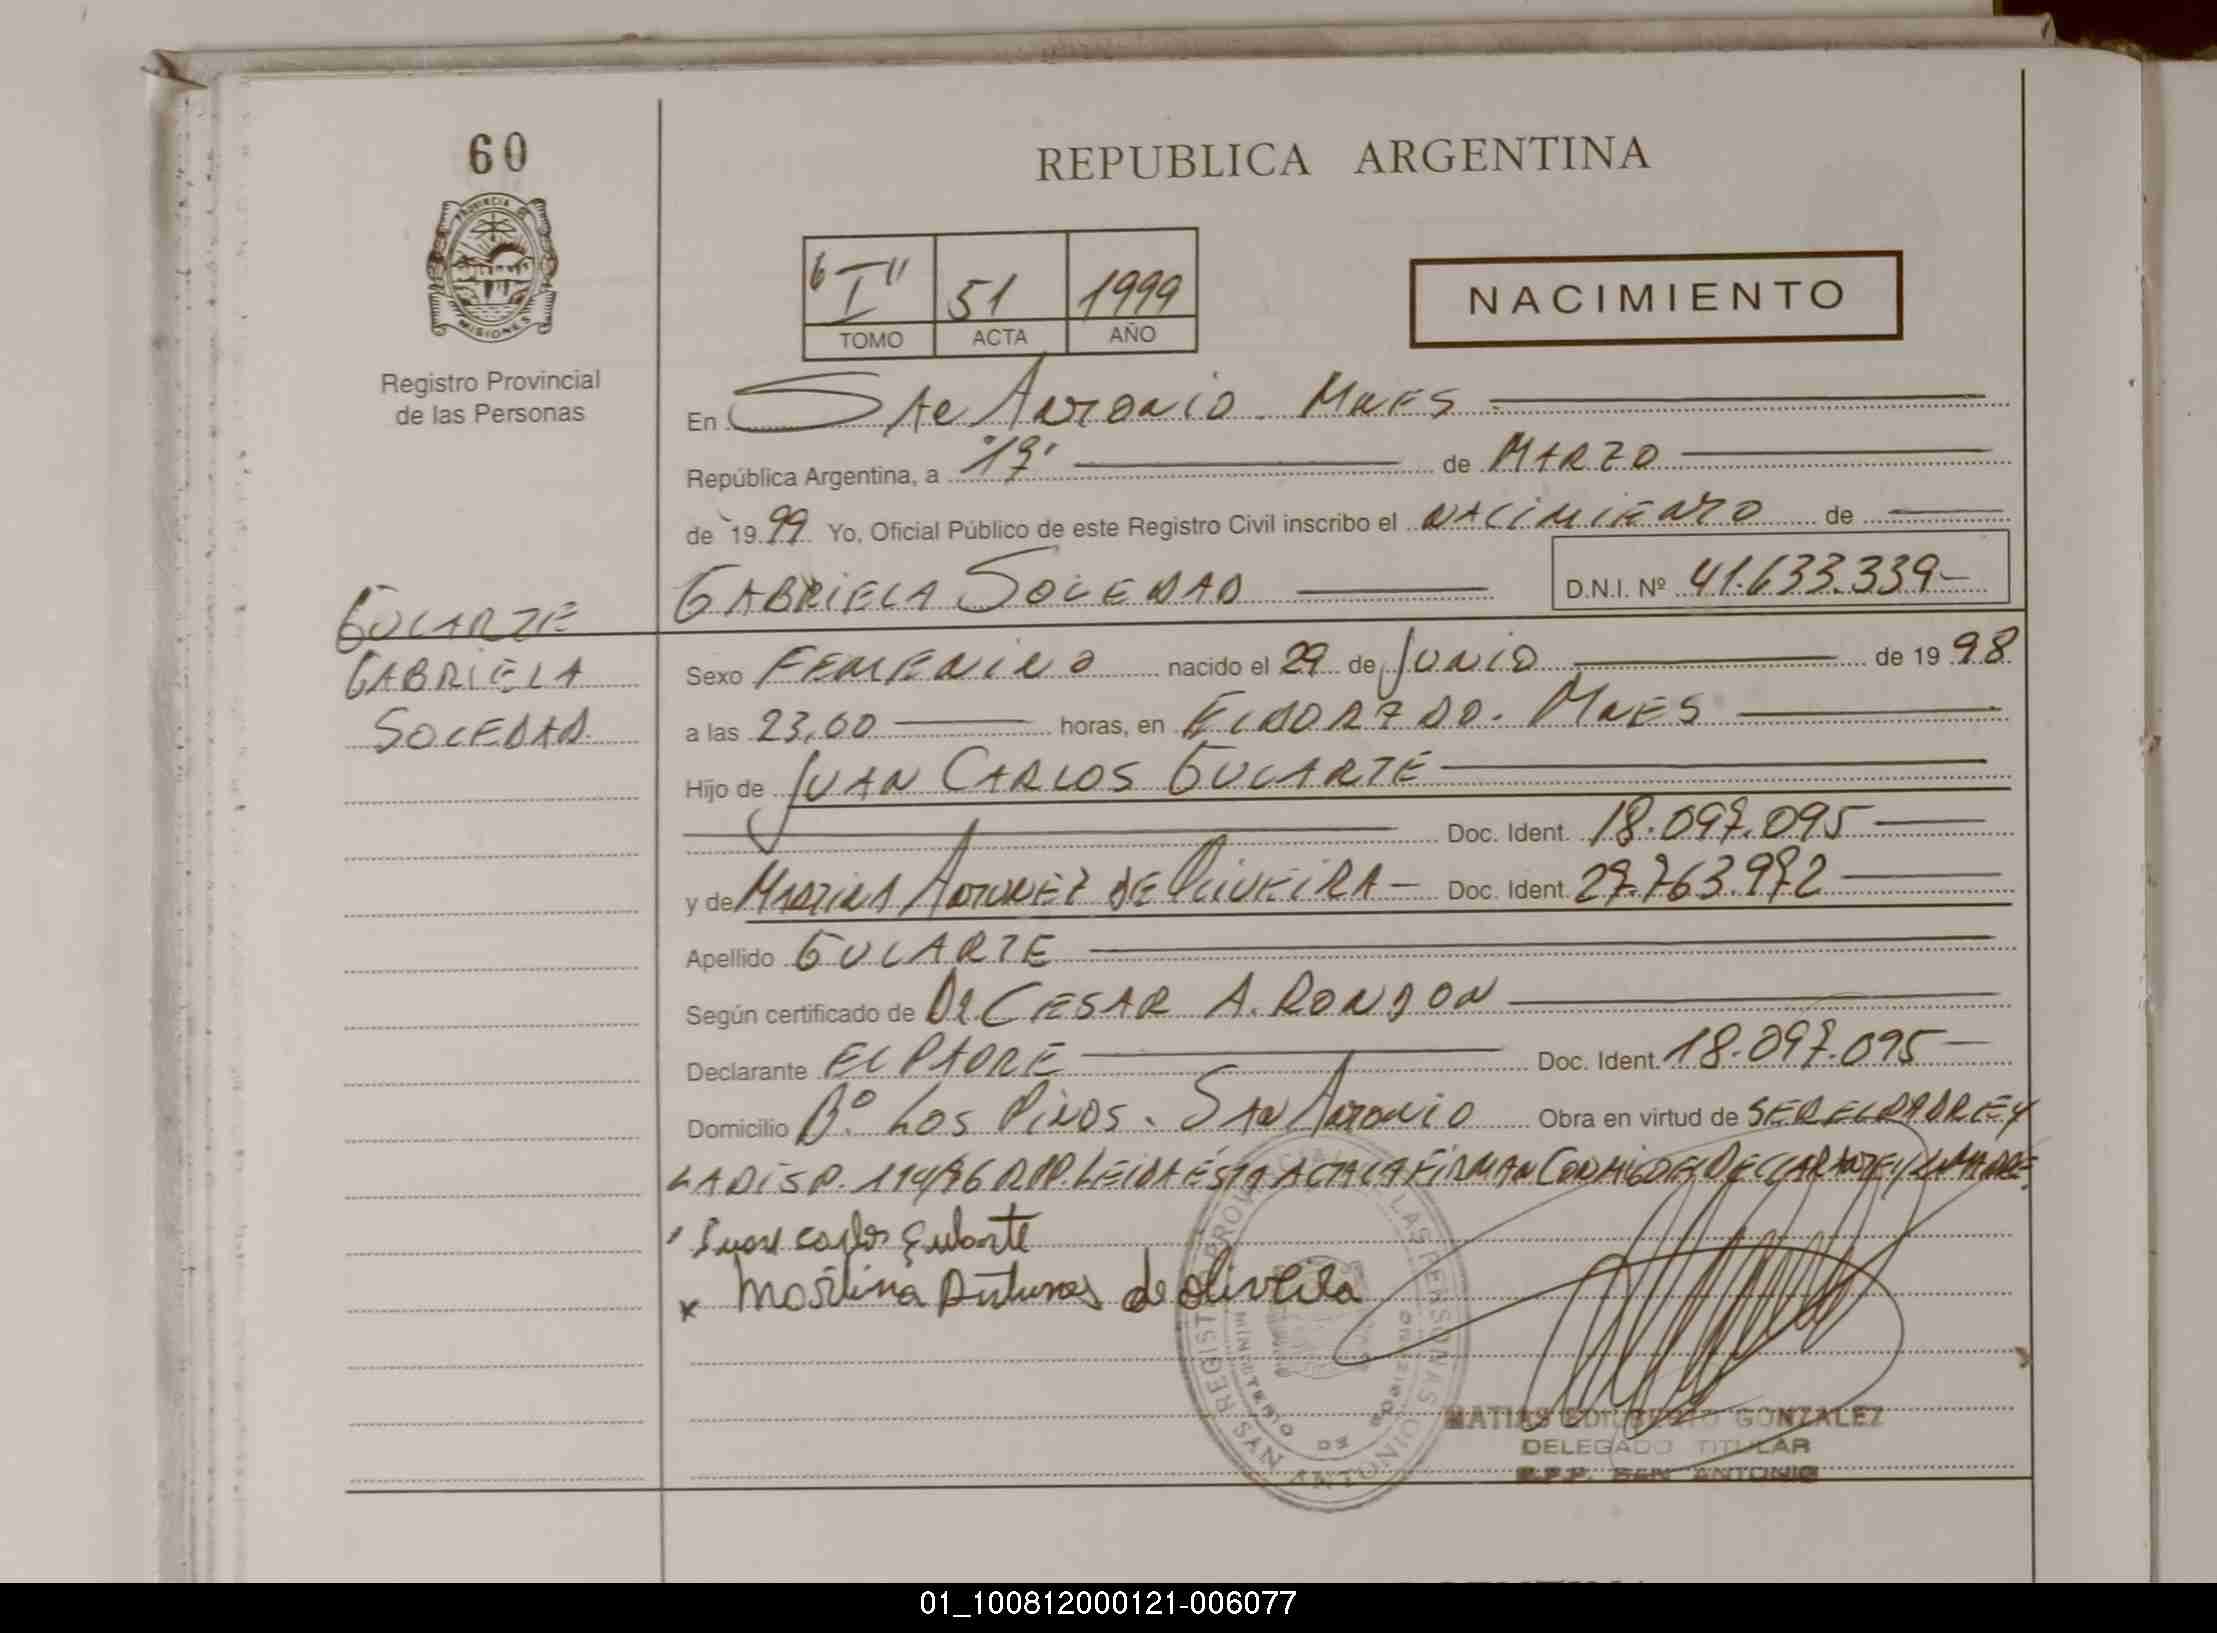 60
PROVINCIA DE
MISIONES
Registro Provincial
de las Personas
REPUBLICA ARGENTINA
"I" 51 1999
TOMO ACTA AÑO
NACIMIENTO
En San Antonio. Mnes
República Argentina, a "17" de MARZO
de 1999 Yo, Oficial Público de este Registro Civil inscribo el NACIMIENTO de
GABRIELA SOLEDAD D.N.I. Nº 41.633.339-
GULARTE
GABRIELA
SOLEDAD
Sexo FEMENINO nacido el 29 de JUNIO de 1998
a las 23,00 horas, en ELDORADO. MNES
Hijo de JUAN CARLOS GULARTE
Doc. Ident. 18.097.095
y de MARINA ANTUNEZ DE OLIVEIRA - Doc. Ident. 27.763.972
Apellido GULARTE
Según certificado de Dr CESAR A. RONDON
Declarante EL PADRE Doc. Ident. 18.097.095
Domicilio Bº. LOS PINOS. SAN ANTONIO Obra en virtud de SER EL PADRE Y
LA DISP. 114/96 RPP. LEIDA ESTA ACTA LA FIRMAN CONMIGO EL DECLARANTE Y LA MADRE.
Juan carlos gularte
x Marina Antunes de oliveira
REGISTRO PROVINCIAL DE LAS PERSONAS
MINISTERIO DE GOBIERNO
SAN ANTONIO
MATIAS EDILBERTO GONZALEZ
DELEGADO TITULAR
R.P.P. SAN ANTONIO
01_100812000121-006077